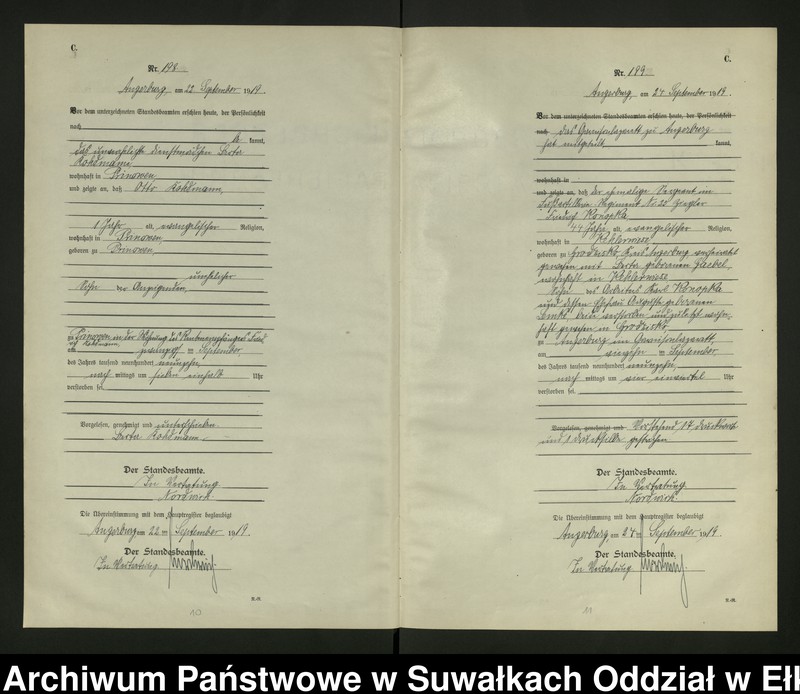 C.
Nr. 198
Angerburg am 22 September 1919.
Vor dem unterzeichneten Standesbeamten erschien heute, der Persönlichkeit
nach
be kannt,
das unverehelichte Dienstmädchen Berta
Kohlmann,
wohnhaft in Prinowen
und zeigte an, daß Otto Kohlmann,
1 Jahr alt, evangelischer Religion,
wohnhaft in Prinowen
geboren zu Prinowen,
unehelicher
Sohn der Anzeigenden,
zu Prinowen in der Wohnung des
am zwanzig September
des Jahres tausend neunhundert neunzehn,
nach mittags um sieben einhalb Uhr
verstorben sei.
Vorgelesen, genehmigt und unterschrieben
Berta Kohlmann.
Der Standesbeamte.
In Vertretung
Nordwich.
Die Übereinstimmung mit dem Hauptregister beglaubigt
Angerburg, am 22 ten September 1919.
Der Standesbeamte.
In Vertretung
10
C.
Nr. 199
Angerburg am 24 September 1919.
Vor dem unterzeichneten Standesbeamten erschien heute, der Persönlichkeit
nach das Garnisonlazarett zu Angerburg
hat mitgeteilt, kannt,
wohnhaft in
und zeigte an, daß der ehemalige Sergeant im
Fußartillerie Regiment No 20
Friedrich Konopka
44 Jahre alt, evangelischer Religion,
wohnhaft in Kehlerwiese
geboren zu Grodzisko, Kreis Angerburg verheiratet
gewesen mit Berta geborenen
wohnhaft in Kehlerwiese
Sohn des Arbeiters Karl Konopka
und dessen Ehefrau Auguste geborenen
beide verstorben und zuletzt wohn-
haft gewesen in Grodzisko,
zu Angerburg im Garnisonlazarett,
am September
des Jahres tausend neunhundert neunzehn,
nach mittags um vier einviertel Uhr
verstorben sei.
Vorgelesen, genehmigt und Vorstehend 14 Druckworte
und 1 Drucksilbe gestrichen.
Der Standesbeamte.
In Vertretung
Nordwich.
Die Übereinstimmung mit dem Hauptregister beglaubigt
Angerburg, am 24 ten September 1919.
Der Standesbeamte.
In Vertretung
11
Archiwum Państwowe w Suwałkach Oddział w Eł